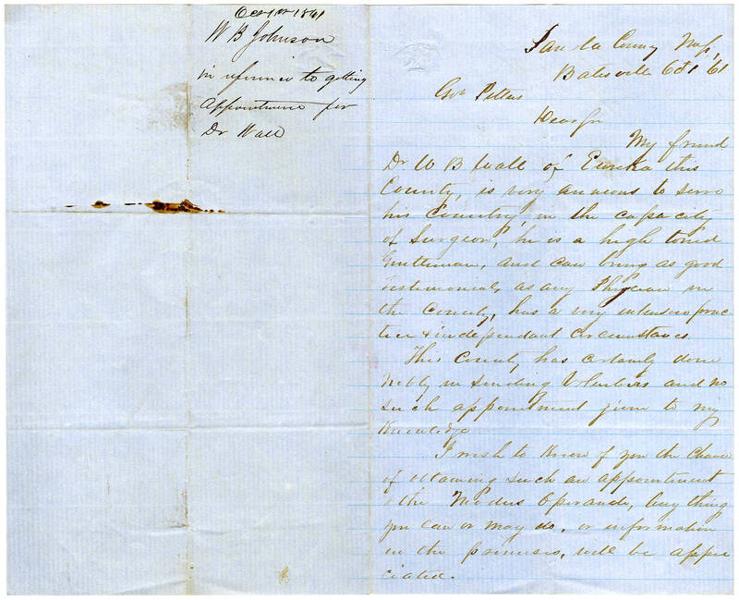 Oct 1st 1861
W B Johnson
in referince to getting
Appointmen for
Dr Wall
Panola County Miss,
Batesville Oct 1 '61
Gov Pettus
Dear Sir
My friend
Dr W B Wall of Eureka this
County, is very anxious to serve
his Country, in the capacity
of Surgeon, he is a high toned
Gentleman, and can bring as good
testimonials as any Physician in
the County, has a very extensive prac
tice & independant circumstances
This County has certainly done
Nobly in sending Volenteers and no
such appointment given to my
Knowledge
I wish to know of you the chance
of obtaining such an appointment
& the Modus Operandi, Any thing
you can or may do, or information
in the premises, will be appre
ciated.